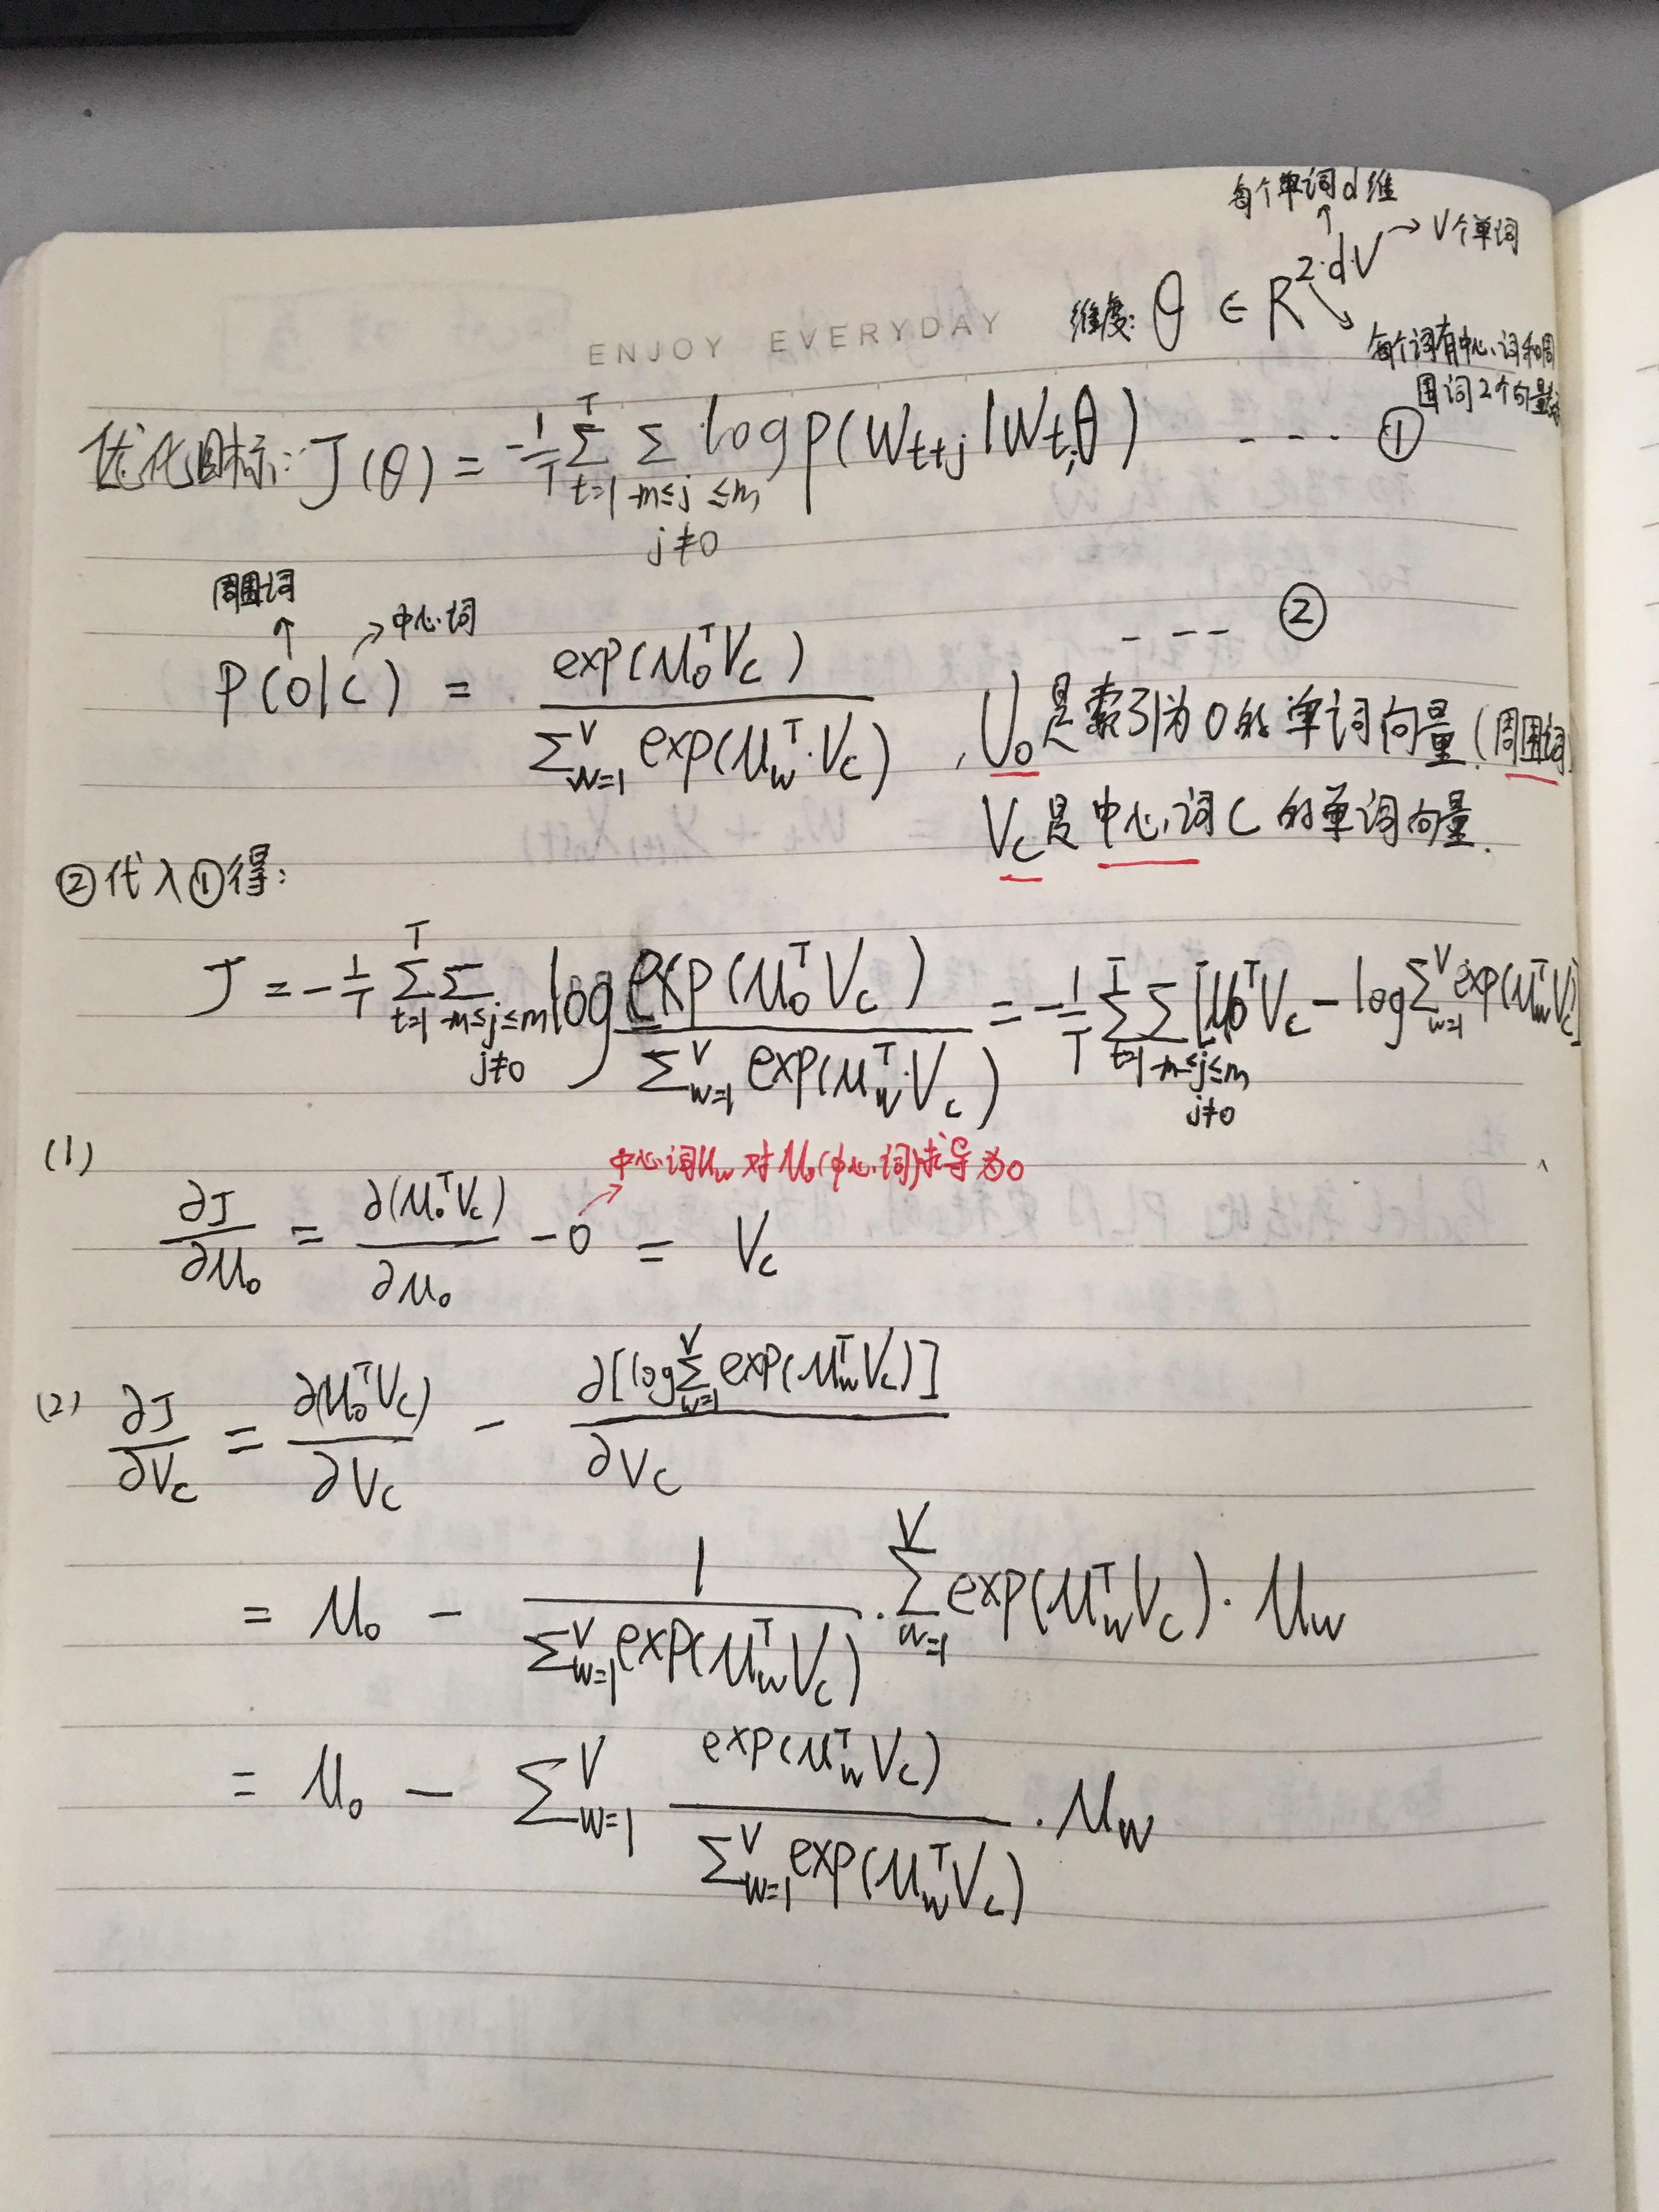 每个单词d维
→ V个单词
ENJOY EVERYDAY
维度: θ ∈ R^{2·d·V}
每个词有中心词和周
围词2个向量表
优化目标: J(θ) = -\frac{1}{T} \sum_{t=1}^{T} \sum_{-m≤j≤m, j≠0} log p(W_{t+j} | W_t; θ) ---- ①
周围词
中心词
---- ②
P(O|C) = \frac{exp(μ_o^T V_c)}{\sum_{w=1}^{V} exp(μ_w^T · V_c)} , U_o是索引为0的单词向量(周围词)
V_c是中心词C的单词向量.
②代入①得:
J = -\frac{1}{T} \sum_{t=1}^{T} \sum_{-m≤j≤m, j≠0} log \frac{exp(μ_o^T V_c)}{\sum_{w=1}^{V} exp(μ_w^T · V_c)} = -\frac{1}{T} \sum_{t=1}^{T} \sum_{-m≤j≤m, j≠0} [μ_o^T V_c - log \sum_{w=1}^{V} exp(μ_w^T V_c)]
(1)
中心词μ_w对μ_o(中心词)求导为0
\frac{∂J}{∂μ_o} = \frac{∂(μ_o^T V_c)}{∂μ_o} - 0 = V_c
(2) \frac{∂J}{∂V_c} = \frac{∂(μ_o^T V_c)}{∂V_c} - \frac{∂[log \sum_{w=1}^{V} exp(μ_w^T V_c)]}{∂V_c}
= μ_o - \frac{1}{\sum_{w=1}^{V} exp(μ_w^T V_c)} · \sum_{w=1}^{V} exp(μ_w^T V_c) · μ_w
= μ_o - \sum_{w=1}^{V} \frac{exp(μ_w^T V_c)}{\sum_{w=1}^{V} exp(μ_w^T V_c)} · μ_w